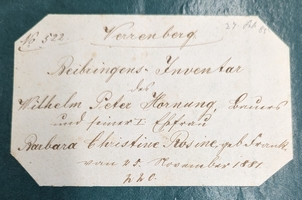 No. 522
Verrenberg
Beibringens-Inventar
des
Wilhelm Peter Hornung, Bauers
und seiner I. Ehefrau
Barbara Christine Rosine, geb. Frank
vom 25. November 1881